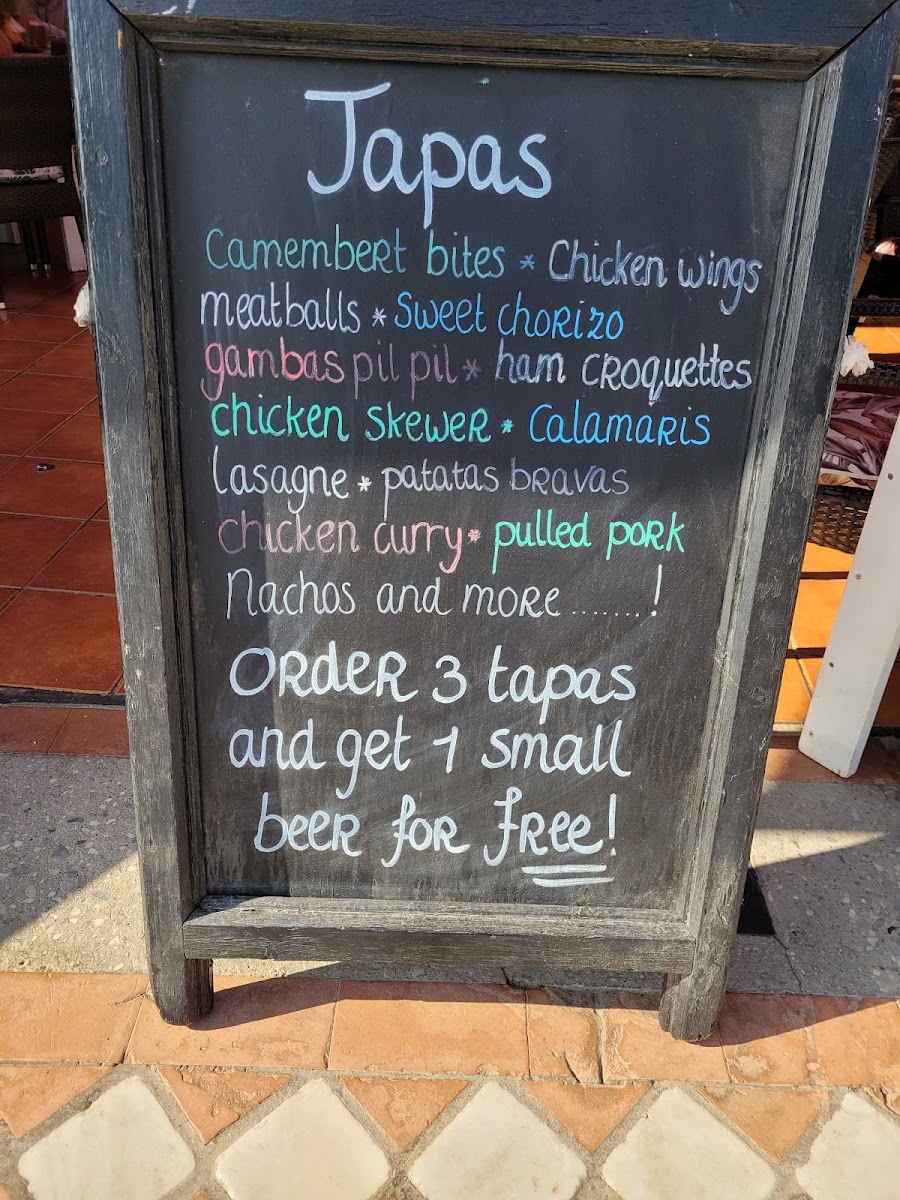 Tapas
Camembert bites * Chicken wings
meatballs * Sweet chorizo
gambas pil pil * ham croquettes
chicken skewer * Calamaris
lasagne * patatas bravas
chicken curry * pulled pork
Nachos and more .......!
Order 3 tapas
and get 1 small
beer for free!